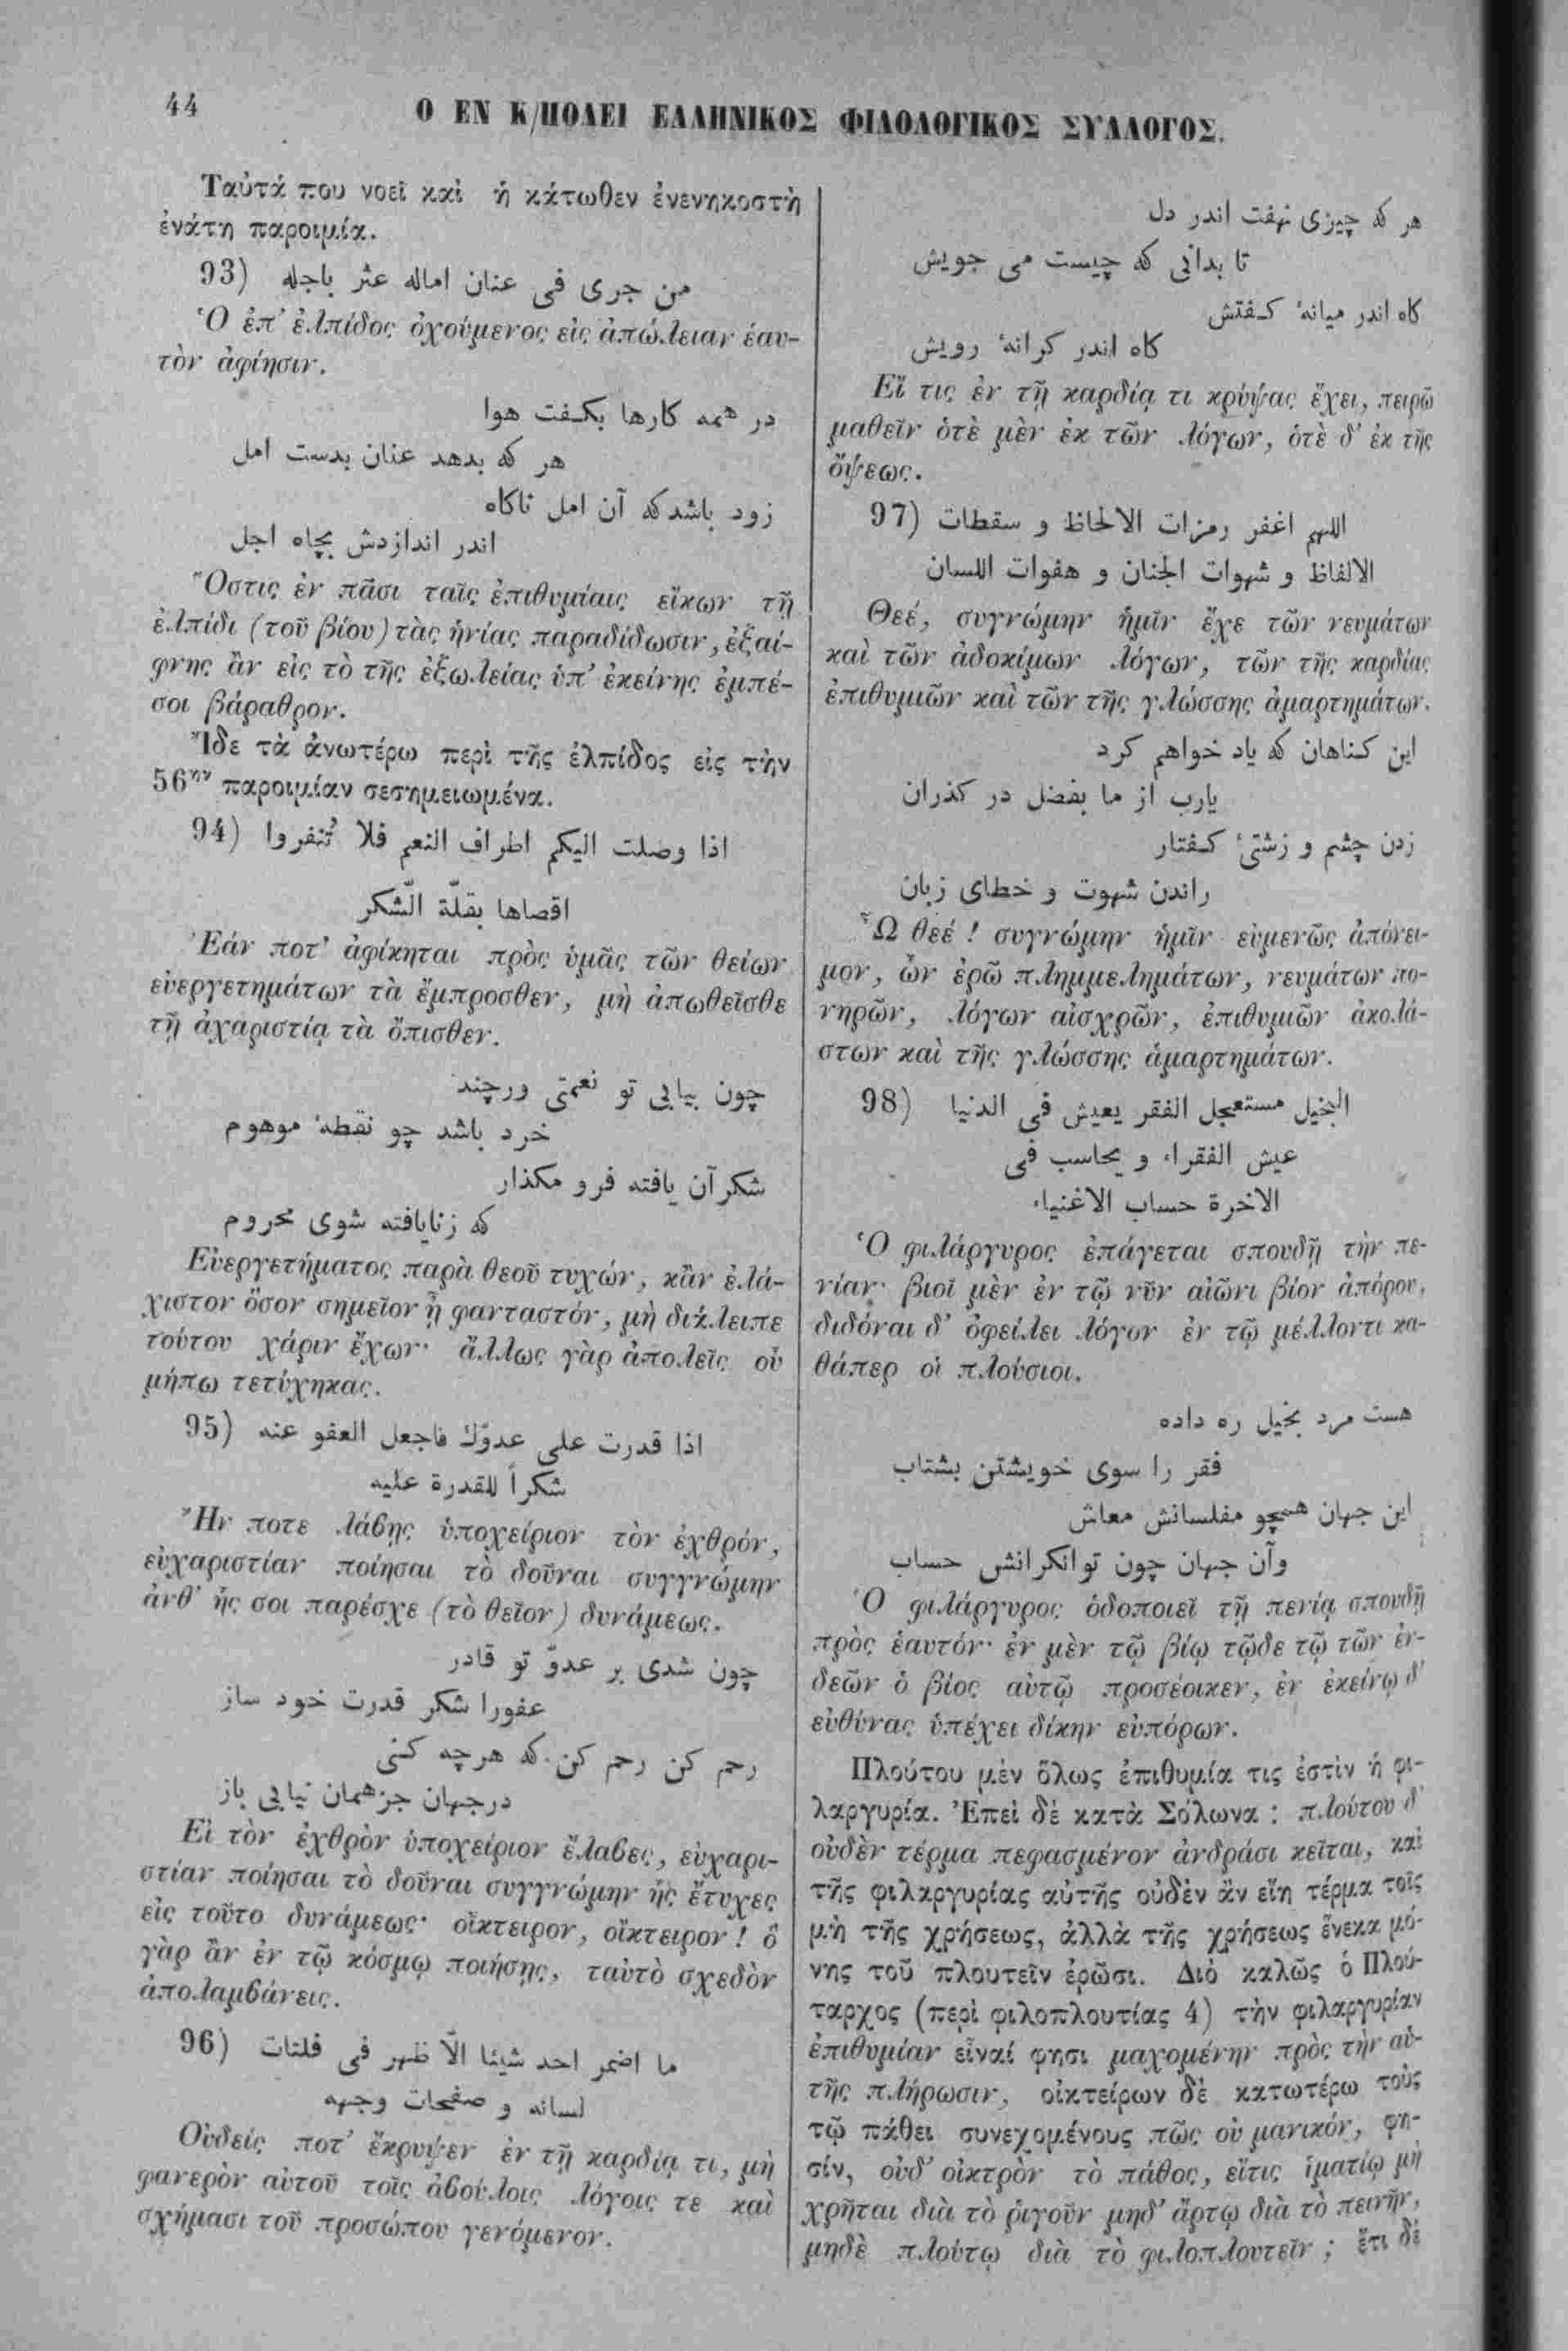 44
Ο ΕΝ Κ/ΠΟΛΕΙ ΕΛΛΗΝΙΚΟΣ ΦΙΛΟΛΟΓΙΚΟΣ ΣΥΛΛΟΓΟΣ.
Ταὐτά που νοεῖ καὶ ἡ κάτωθεν ἐνενηκοστὴ
ἐνάτη παροιμία.
93) من جرى فى عنان امله عثر باجله
Ὁ ἐπ' ἐλπίδος ὀχούμενος εἰς ἀπώλειαν ἑαυ-
τὸν ἀφίησιν.
در همه كارها بكـفت هوا
هر كه بدهد عنان بدست امل
زود باشدكه آن امل ناكاه
اندر اندازدش بچاه اجل
Ὅστις ἐν πᾶσι ταῖς ἐπιθυμίαις εἴκων τῇ
ἐλπίδι (τοῦ βίου) τὰς ἡνίας παραδίδωσιν, ἐξαί-
φνης ἂν εἰς τὸ τῆς ἐξωλείας ὑπ' ἐκείνης ἐμπέ-
σοι βάραθρον.
Ἴδε τὰ ἀνωτέρω περὶ τῆς ἐλπίδος εἰς τὴν
56ην παροιμίαν σεσημειωμένα.
94) اذا وصلت اليكم اطراف النعم فلا تُنفروا
اقصاها بقلّة الشّكر
Ἐάν ποτ' ἀφίκηται πρὸς ὑμᾶς τῶν θείων
εὐεργετημάτων τὰ ἔμπροσθεν, μὴ ἀπωθεῖσθε
τῇ ἀχαριστίᾳ τὰ ὄπισθεν.
چون بيابى تو نعمتى ورچند
خرد باشد چو نقطهٔ موهوم
شكرآن يافته فرو مكذار
كه زنايافته شوى محروم
Εὐεργετήματος παρὰ θεοῦ τυχών, κἂν ἐλά-
χιστον ὅσον σημεῖον ᾖ φανταστόν, μὴ διάλειπε
τούτου χάριν ἔχων· ἄλλως γὰρ ἀπολεῖς οὗ
μήπω τετύχηκας.
95) اذا قدرت على عدوّك فاجعل العفو عنه
شكراً للقدرة عليه
Ἤν ποτε λάβῃς ὑποχείριον τὸν ἐχθρόν,
εὐχαριστίαν ποίησαι τὸ δοῦναι συγγνώμην
ἀνθ' ἧς σοι παρέσχε (τὸ θεῖον) δυνάμεως.
چون شدى بر عدوّ تو قادر
عفورا شكر قدرت خود ساز
رحم كن رحم كن. كه هرچه كنى
درجهان جزهمان نيابى باز
Εἰ τὸν ἐχθρὸν ὑποχείριον ἔλαβες, εὐχαρι-
στίαν ποίησαι τὸ δοῦναι συγγνώμην ἧς ἔτυχες
εἰς τοῦτο δυνάμεως· οἴκτειρον, οἴκτειρον! ὃ
γὰρ ἂν ἐν τῷ κόσμῳ ποιήσῃς, ταὐτὸ σχεδὸν
ἀπολαμβάνεις.
96) ما اضمر احد شيئا الّا ظهر فى فلتات
لسانه و صفحات وجهه
Οὐδείς ποτ' ἔκρυψεν ἐν τῇ καρδίᾳ τι, μὴ
φανερὸν αὐτοῦ τοῖς ἀβούλοις λόγοις τε καὶ
σχήμασι τοῦ προσώπου γενόμενον.
هر كه چيزى نهفت اندر دل
تا بدانى كه چيست مى جويش
كاه اندر ميانهٔ كـفتش
كاه اندر كرانهٔ رويش
Εἴ τις ἐν τῇ καρδίᾳ τι κρύψας ἔχει, πειρῶ
μαθεῖν ὁτὲ μὲν ἐκ τῶν λόγων, ὁτὲ δ' ἐκ τῆς
ὄψεως.
97) اللهم اغفر رمزات الالحاظ و سقطات
الالفاظ و شهوات الجنان و هفوات اللسان
Θεέ, συγνώμην ἡμῖν ἔχε τῶν νευμάτων
καὶ τῶν ἀδοκίμων λόγων, τῶν τῆς καρδίας
ἐπιθυμιῶν καὶ τῶν τῆς γλώσσης ἁμαρτημάτων.
اين كـناهان كه ياد خواهم كرد
يارب از ما بفضل در كذران
زدن چشم و زشتىٔ كـفتار
راندن شهوت و خطاى زبان
Ὦ θεέ! συγνώμην ἡμῖν εὐμενῶς ἀπόνει-
μον, ὧν ἐρῶ πλημμελημάτων, νευμάτων πο-
νηρῶν, λόγων αἰσχρῶν, ἐπιθυμιῶν ἀκολά-
στων καὶ τῆς γλώσσης ἁμαρτημάτων.
98) البخيل مستعجل الفقر يعيش فى الدنيا
عيش الفقراء و يحاسب فى
الاخرة حساب الاغنياء
Ὁ φιλάργυρος ἐπάγεται σπουδῇ τὴν πε-
νίαν· βιοῖ μὲν ἐν τῷ νῦν αἰῶνι βίον ἀπόρου,
διδόναι δ' ὀφείλει λόγον ἐν τῷ μέλλοντι κα-
θάπερ οἱ πλούσιοι.
هست مرد بخيل ره داده
فقر را سوى خويشتن بشتاب
اين جهان همچو مفلسانش معاش
وآن جهان چون توانكرانش حساب
Ὁ φιλάργυρος ὁδοποιεῖ τῇ πενίᾳ σπουδῇ
πρὸς ἑαυτόν· ἐν μὲν τῷ βίῳ τῷδε τῷ τῶν ἐν-
δεῶν ὁ βίος αὐτῷ προσέοικεν, ἐν ἐκείνῳ δ'
εὐθύνας ὑπέχει δίκην εὐπόρων.
Πλούτου μὲν ὅλως ἐπιθυμία τις ἐστὶν ἡ φι-
λαργυρία. Ἐπεὶ δὲ κατὰ Σόλωνα: πλούτου δ'
οὐδὲν τέρμα πεφασμένον ἀνδράσι κεῖται, καὶ
τῆς φιλαργυρίας αὐτῆς οὐδὲν ἂν εἴη τέρμα τοῖς
μὴ τῆς χρήσεως, ἀλλὰ τῆς χρήσεως ἕνεκα μό-
νης τοῦ πλουτεῖν ἐρῶσι. Διὸ καλῶς ὁ Πλού-
ταρχος (περὶ φιλοπλουτίας 4) τὴν φιλαργυρίαν
ἐπιθυμίαν εἶναί φησι μαχομένην πρὸς τὴν αὑ-
τῆς πλήρωσιν, οἰκτείρων δὲ κατωτέρω τοὺς
τῷ πάθει συνεχομένους πῶς οὐ μανικόν, φη-
σίν, οὐδ' οἰκτρὸν τὸ πάθος, εἴτις ἱματίῳ μὴ
χρῆται διὰ τὸ ῥιγοῦν μηδ' ἄρτῳ διὰ τὸ πεινῆν,
μηδὲ πλούτῳ διὰ τὸ φιλοπλουτεῖν; ἔτι δὲ